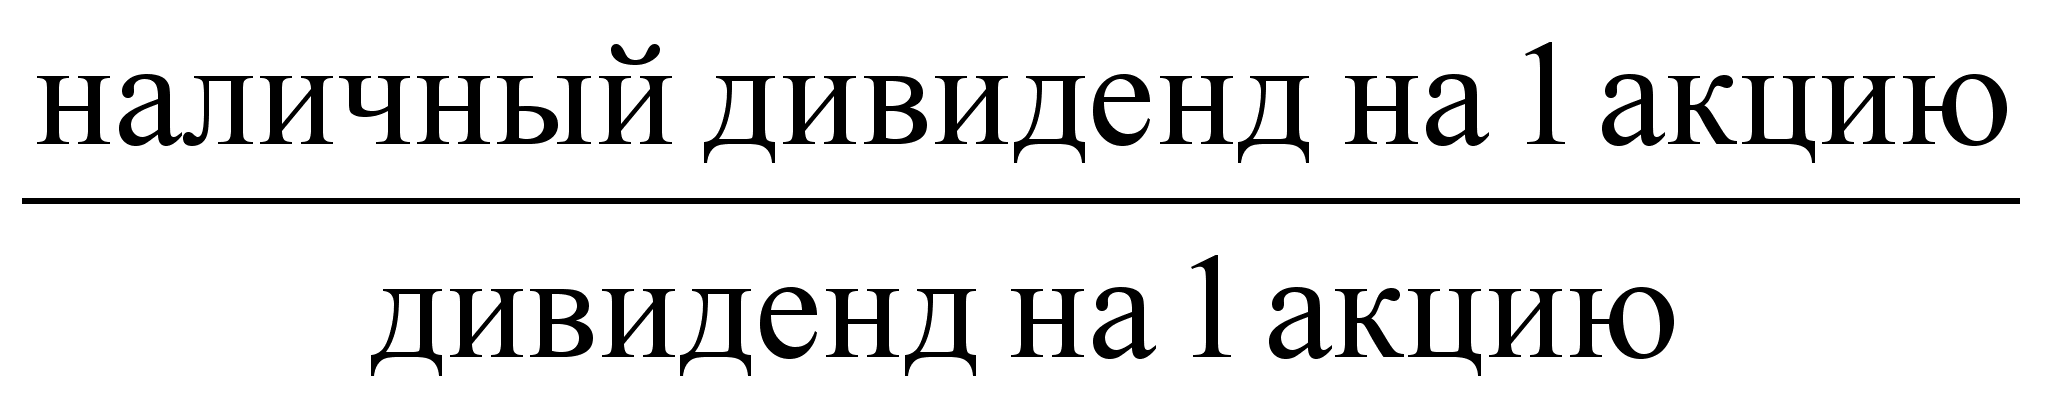 наличный дивиденд на 1 акцию
дивиденд на 1 акцию